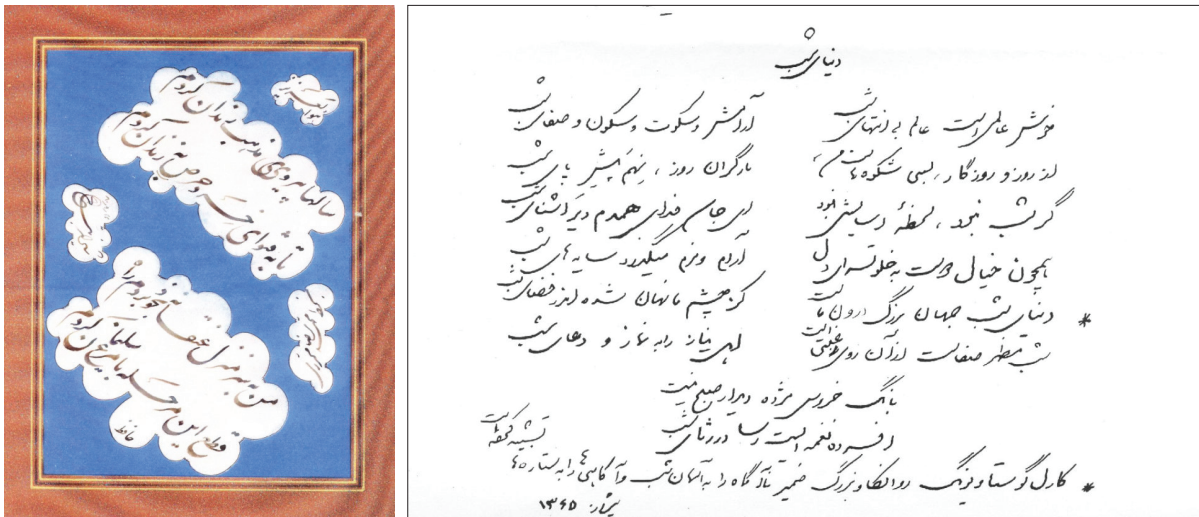 سالها پیروی مذهب رندان کردم
تا به فتوای خرد حرص به زندان کردم
من به سرمنزل عنقا نه به خود بردم راه
قطع این مرحله با مرغ سلیمان کردم
حافظ
دنیای شب
خوش عالمی است عالم بی انتهای شب آرامش و سکوت و سکون و صفای شب
از روز و روزگار، بسی شکوه هاست بار گران روز، نهم پیش پای شب
گر شب نبود، لحظهٔ آسایشی نبود ای جان فدای همدم دیر آشنای شب
همچون خیال دوست به خلوتسرای دل آرام و نرم سایه های شب
* دنیای شب جهان بزرگ درون ماست کز چشم ما نهان شده اندر فضای شب
شب مظهر صفاست از آن روی اهل نیاز را به نماز و دعای شب
بانگ خروس مژدهٔ دیدار صبح نیست
افسرده نغمه ایست رسا در رثای شب
* کارل گوستاو یونگ روانکاو بزرگ ضمیر ناآگاه را به آسمان شب و آگاهی ها را به ستاره ها تشبیه
شیراز ۱۳۶۵